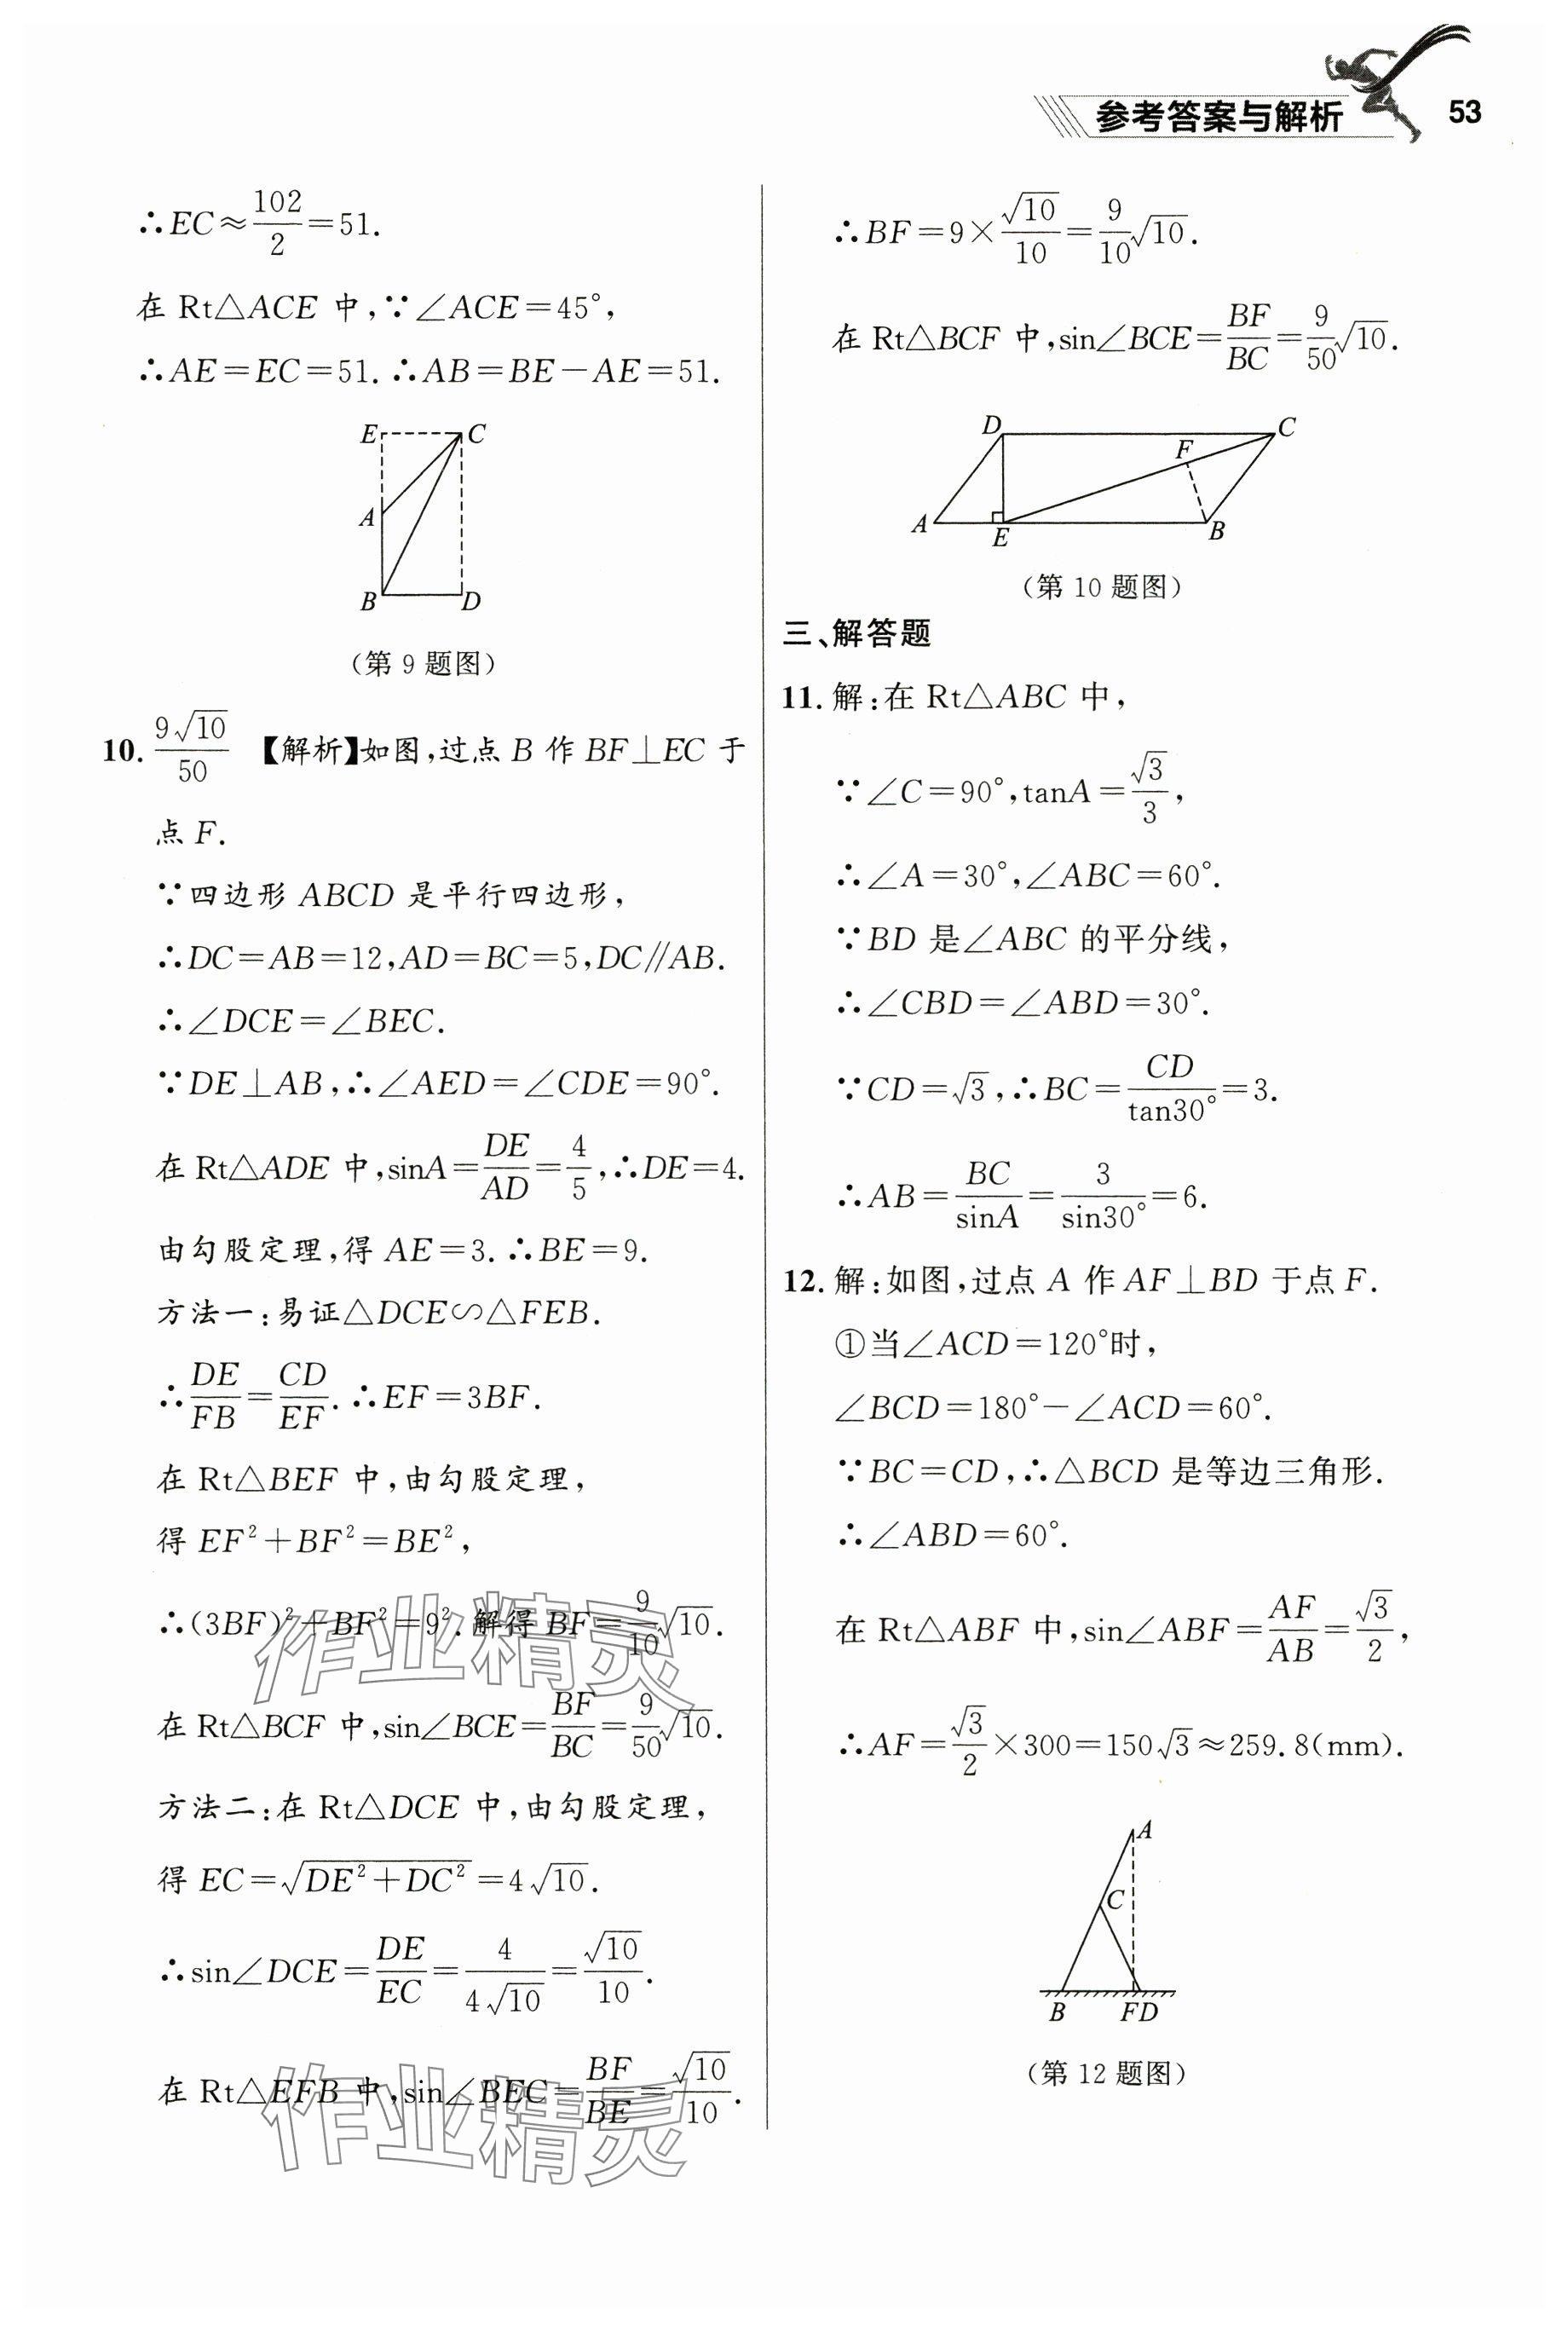 参考答案与解析 53
∴EC≈102/2=51.
在 Rt△ACE 中,∵∠ACE=45°,
∴AE=EC=51.∴AB=BE-AE=51.
E C
A
B D
(第 9 题图)
10. 9√10/50 【解析】如图,过点 B 作 BF⊥EC 于
点 F.
∵四边形 ABCD 是平行四边形,
∴DC=AB=12,AD=BC=5,DC∥AB.
∴∠DCE=∠BEC.
∵DE⊥AB,∴∠AED=∠CDE=90°.
在 Rt△ADE 中,sinA=DE/AD=4/5,∴DE=4.
由勾股定理,得 AE=3.∴BE=9.
方法一:易证△DCE∽△FEB.
∴DE/FB=CD/EF.∴EF=3BF.
在 Rt△BEF 中,由勾股定理,
得 EF²+BF²=BE²,
∴(3BF)²+BF²=9².解得 BF=9/10√10.
在 Rt△BCF 中,sin∠BCE=BF/BC=9/50√10.
方法二:在 Rt△DCE 中,由勾股定理,
得 EC=√(DE²+DC²)=4√10.
∴sin∠DCE=DE/EC=4/(4√10)=√10/10.
在 Rt△EFB 中,sin∠BEC=BF/BE=√10/10.
∴BF=9×√10/10=9/10√10.
在 Rt△BCF 中,sin∠BCE=BF/BC=9/50√10.
D C
F
A E B
(第 10 题图)
三、解答题
11. 解:在 Rt△ABC 中,
∵∠C=90°,tanA=√3/3,
∴∠A=30°,∠ABC=60°.
∵BD 是∠ABC 的平分线,
∴∠CBD=∠ABD=30°.
∵CD=√3,∴BC=CD/tan30°=3.
∴AB=BC/sinA=3/sin30°=6.
12. 解:如图,过点 A 作 AF⊥BD 于点 F.
①当∠ACD=120°时,
∠BCD=180°-∠ACD=60°.
∵BC=CD,∴△BCD 是等边三角形.
∴∠ABD=60°.
在 Rt△ABF 中,sin∠ABF=AF/AB=√3/2,
∴AF=√3/2×300=150√3≈259.8(mm).
A
C
B FD
(第 12 题图)
作业精灵
作业精灵